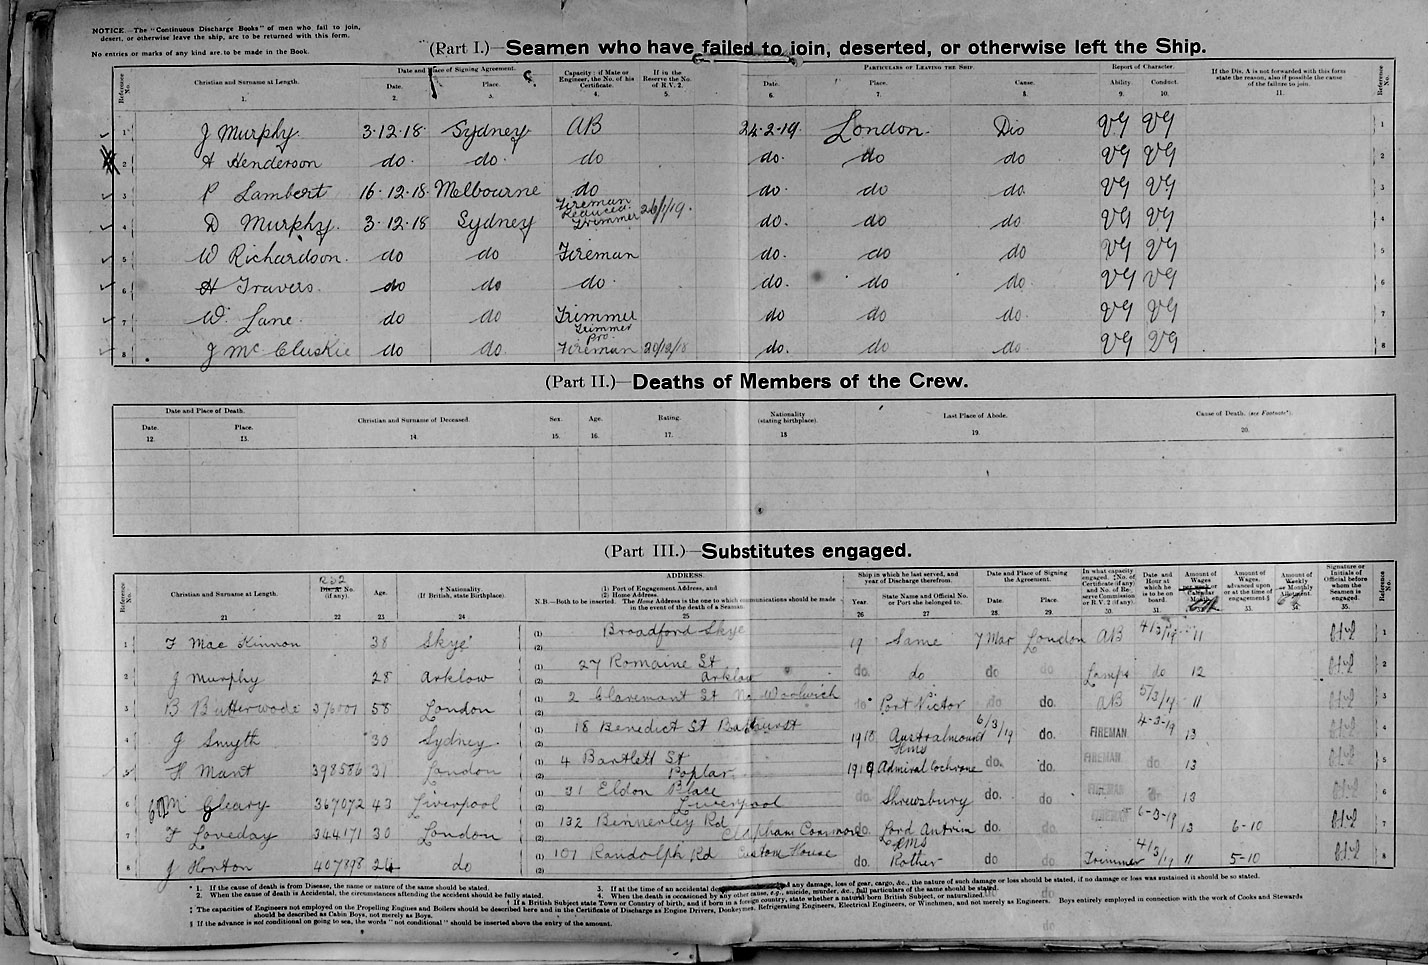 NOTICE.—The "Continuous Discharge Books" of men who fail to join,
desert, or otherwise leave the ship, are to be returned with this form.
No entries or marks of any kind are to be made in the Book.
(Part I.)—Seamen who have failed to join, deserted, or otherwise left the Ship.
Reference No. Christian and Surname at Length. Date and Place of Signing Agreement. Date. Place. Capacity: if Mate or Engineer, the No. of his Certificate. If in the Reserve the No. of R.V. 2. Particulars of Leaving the Ship Date. Place. Cause. Report of Character. Ability. Conduct. If the Dis. A is not forwarded with this form state the reason, also if possible the cause of the failure to join. Reference No.
1. 2. 3. 4. 5. 6. 7. 8. 9. 10. 11.
1 J Murphy 3.12.18 Sydney AB 24.2.19 London Dis VG VG 1
2 A Henderson do do do do do do VG VG 2
3 P Lambert 16.12.18 Melbourne do do do do VG VG 3
4 D Murphy 3.12.18 Sydney Fireman Reduced Trimmer 26/1/19 do. do do VG VG 4
5 W Richardson do do Fireman do. do do VG VG 5
6 H Travers do do do do. do do VG VG 6
7 W Lane do do Trimmer do do do VG VG 7
8 J McCluskie do do Trimmer Pro Fireman 20/12/18 do. do do VG VG 8
(Part II.)—Deaths of Members of the Crew.
Date and Place of Death. Date. Place. Christian and Surname of Deceased. Sex. Age. Rating. Nationality (stating birthplace). Last Place of Abode. Cause of Death. (see Footnote*).
12. 13. 14. 15. 16. 17. 18 19. 20.
(Part III.)—Substitutes engaged.
Reference No. Christian and Surname at Length. Dis. A. No. (if any). Age. † Nationality. (If British, state Birthplace). ADDRESS. (1) Port of Engagement Address, and (2) Home Address. N.B.—Both to be inserted. The Home Address is the one to which communications should be made in the event of the death of a Seaman. Ship in which he last served, and year of Discharge therefrom. Year. State Name and Official No. or Port she belonged to. Date and Place of Signing the Agreement. Date. Place. In what capacity engaged. ‡ No. of Certificate (if any) and No. of Reserve Commission or R.V. 2 (if any). Date and Hour at which he is to be on board. Amount of Wages per week or Calendar Month. Amount of Wages advanced upon or at the time of engagement.§ Amount of Weekly or Monthly Allotment. Signature or Initials of Official before whom the Seaman is engaged. Reference No.
21 22 23 24 25 26 27 28. 29. 30. 31. 34. 35.
1 F Mac Kinnon 38 Skye (1) Broadford Skye (2) 19 Same 7 Mar London AB 4/3/19 11 1
2 J Murphy 28 Arklow (1) 27 Romaine St (2) Arklow do. do do do Lamps do 12 2
3 B Butterwade 58 London (1) 2 Claremont St No Woolwich (2) Port Victor do do. AB 5/3/19 11 3
4 J Smyth 30 Sydney (1) 18 Benedict St Bathurst (2) 1918 Australmount 6/3/19 do. FIREMAN 4-3-19 13 4
5 H Mant 398586 31 London (1) 4 Bartlett St (2) Poplar 1919 HMS Admiral Cochrane do. do. FIREMAN do 13 5
6 M Cleary 367072 43 Liverpool (1) 31 Eldon Place (2) Liverpool do. Shrewsbury do. do. FIREMAN 13 6
7 F Loveday 344171 30 London (1) 132 Binnerley Rd (2) Clapham Common do. Lord Antrim do. do. FIREMAN 6-3-19 13 6-10 7
8 J Horton 407898 24 do (1) 107 Randolph Rd Custom House (2) do. HMS Rother do do. Trimmer 4/3/19 11 5-10 8
* 1. If the cause of death is from Disease, the name or nature of the same should be stated.
2. When the cause of death is Accidental, the circumstances attending the accident should be fully stated.
3. If at the time of an accidental any damage, loss of gear, cargo, &c., the nature of such damage or loss should be stated, if no damage or loss was sustained it should be so stated.
4. When the death is occasioned by any other cause, e.g., suicide, murder, &c., full particulars of the same should be stated.
† If a British Subject state Town or Country of birth, and if born in a foreign country, state whether a natural born British Subject, or naturalized.
‡ The capacities of Engineers not employed on the Propelling Engines and Boilers should be described here and in the Certificate of Discharge as Engine Drivers, Donkeymen, Refrigerating Engineers, Electrical Engineers, or Winchmen, and not merely as Engineers. Boys entirely employed in connection with the work of Cooks and Stewards
should be described as Cabin Boys, not merely as Boys.
§ If the advance is not conditional on going to sea, the words "not conditional" should be inserted above the entry of the amount.